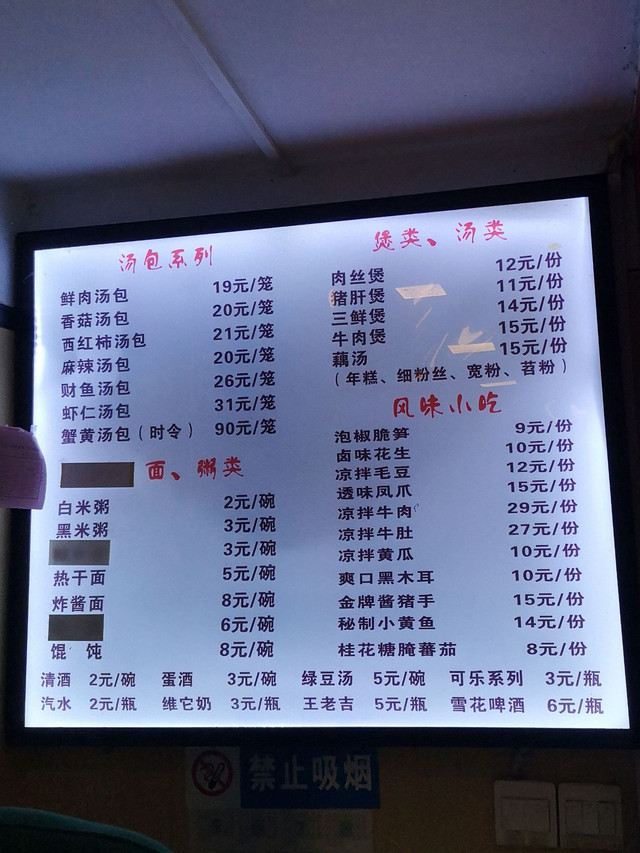 汤包系列
鲜肉汤包 19元/笼
香菇汤包 20元/笼
西红柿汤包 21元/笼
麻辣汤包 20元/笼
财鱼汤包 26元/笼
虾仁汤包 31元/笼
蟹黄汤包（时令） 90元/笼
面、粥类
白米粥 2元/碗
黑米粥 3元/碗
3元/碗
热干面 5元/碗
炸酱面 8元/碗
6元/碗
馄 饨 8元/碗
煲类、汤类
肉丝煲 12元/份
猪肝煲 11元/份
三鲜煲 14元/份
牛肉煲 15元/份
藕汤 15元/份
（年糕、细粉丝、宽粉、苕粉）
风味小吃
泡椒脆笋 9元/份
卤味花生 10元/份
凉拌毛豆 12元/份
透味凤爪 15元/份
凉拌牛肉 29元/份
凉拌牛肚 27元/份
凉拌黄瓜 10元/份
爽口黑木耳 10元/份
金牌酱猪手 15元/份
秘制小黄鱼 14元/份
桂花糖腌蕃茄 8元/份
清酒 2元/碗 蛋酒 3元/碗 绿豆汤 5元/碗 可乐系列 3元/瓶
汽水 2元/瓶 维它奶 3元/瓶 王老吉 5元/瓶 雪花啤酒 6元/瓶
禁止吸烟